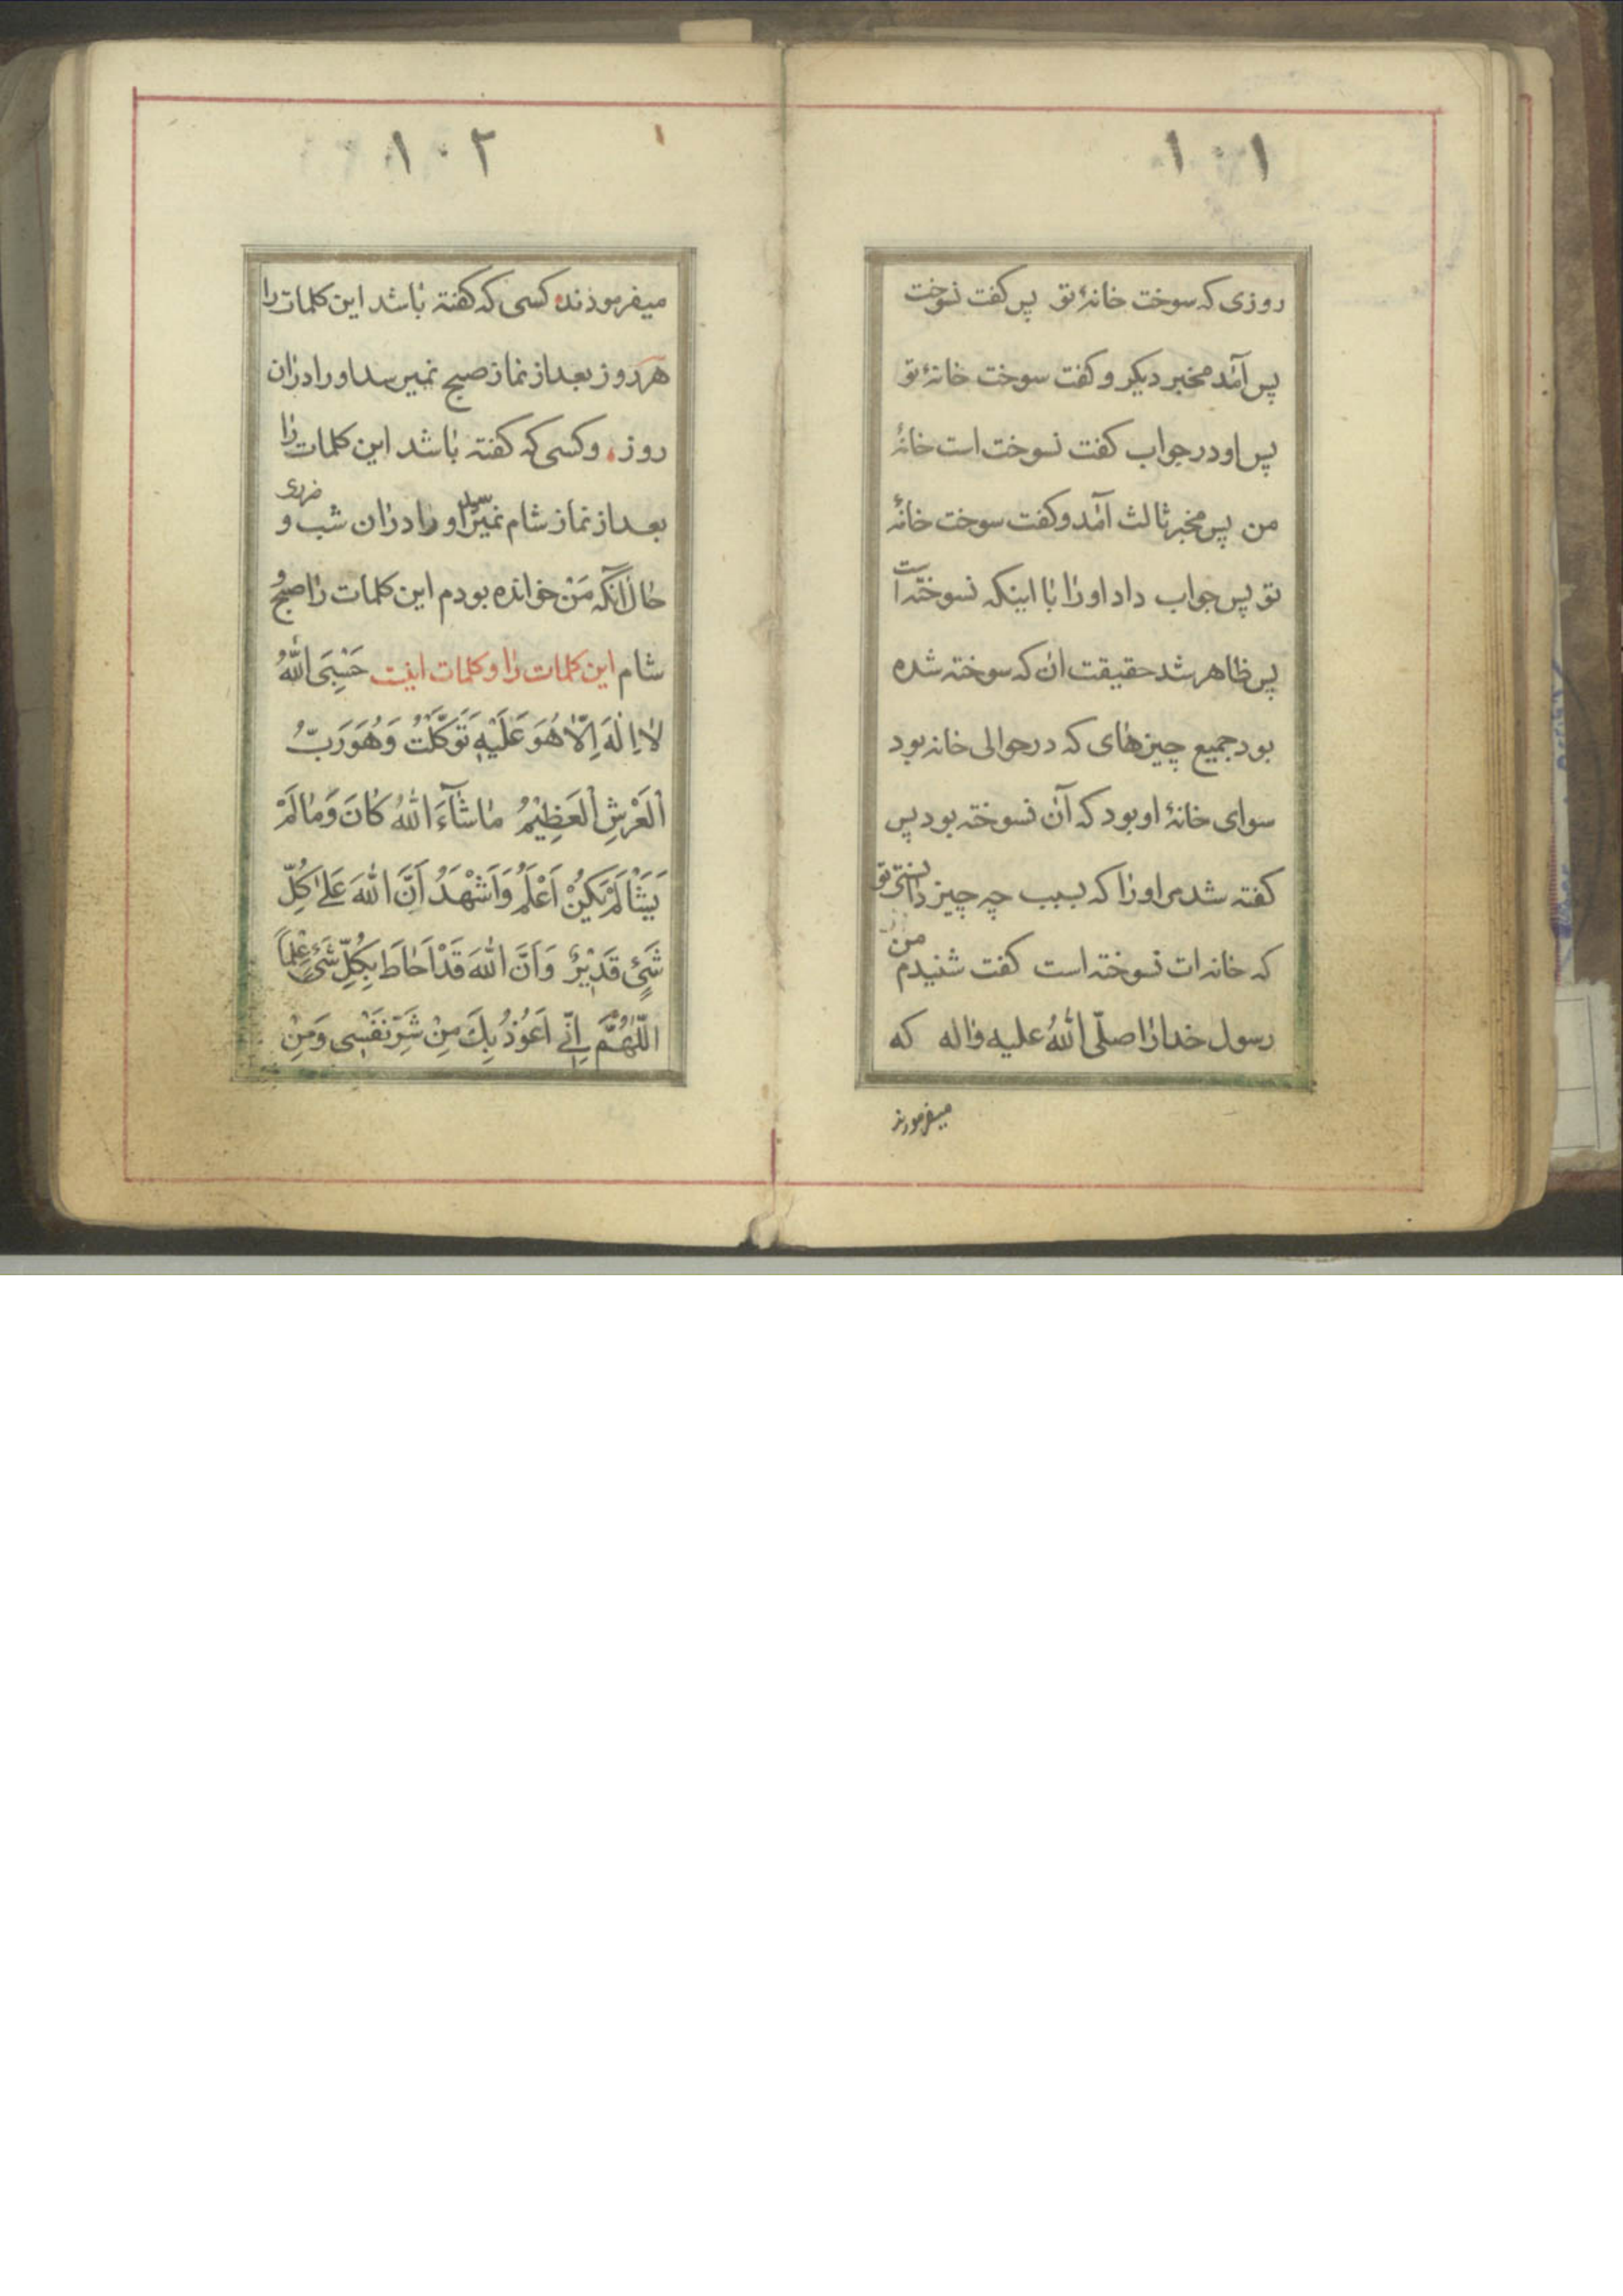 ١٠١
روزی که سوخت خانهٔ تو پس کفت نسوخت
پس آمد مخبر دیکر و کفت سوخت خانهٔ تو
پس او در جواب کفت نسوخت است خانهٔ
من پس مخبر ثالث آمد و کفت سوخت خانهٔ
تو پس جواب داد او را با اینکه نسوخته است
پس ظاهر شد حقیقت ان که سوخته شده
بود جمیع چیزهای که در حوالی خانه بود
سوای خانهٔ او بود که آن نسوخته بود پس
کفته شد مر او را که بسبب چه چیز دانستی تو
که خانه ات نسوخته است کفت شنیدم من
رسول خدا را صلّی اللّهُ علیه واله که
میفرمودند
١٠٢
میفرمودند کسی که کفته باشد این کلمات را
هر روز بعد از نماز صبح نمیرسد او را در ان
روز و کسی که کفته باشد این کلمات را
بعد از نماز شام نمیرسد او را در ان شب ضرری و
حال آنکه مَنْ خوانده بودم این کلمات را صبح و
شام این کلمات را و کلمات اینت حَسْبِیَ اللّهُ
لا اِلٰهَ اِلّا هُوَ عَلَیْهِ تَوَکَّلْتُ وَهُوَ رَبُّ
الْعَرْشِ الْعَظِیْمُ مَا شَآءَ اللّهُ کَانَ وَمَا لَمْ
یَشَأْ لَمْ یَکُنْ اَعْلَمُ وَاَشْهَدُ اَنَّ اللّهَ عَلیٰ کُلِّ
شَیْءٍ قَدِیْرٌ وَاَنَّ اللّهَ قَدْ اَحَاطَ بِکُلِّ شَیْءٍ عِلْماً
اللّهُمَّ اِنّی اَعُوْذُ بِكَ مِنْ شَرِّ نَفْسِی وَمِنْ